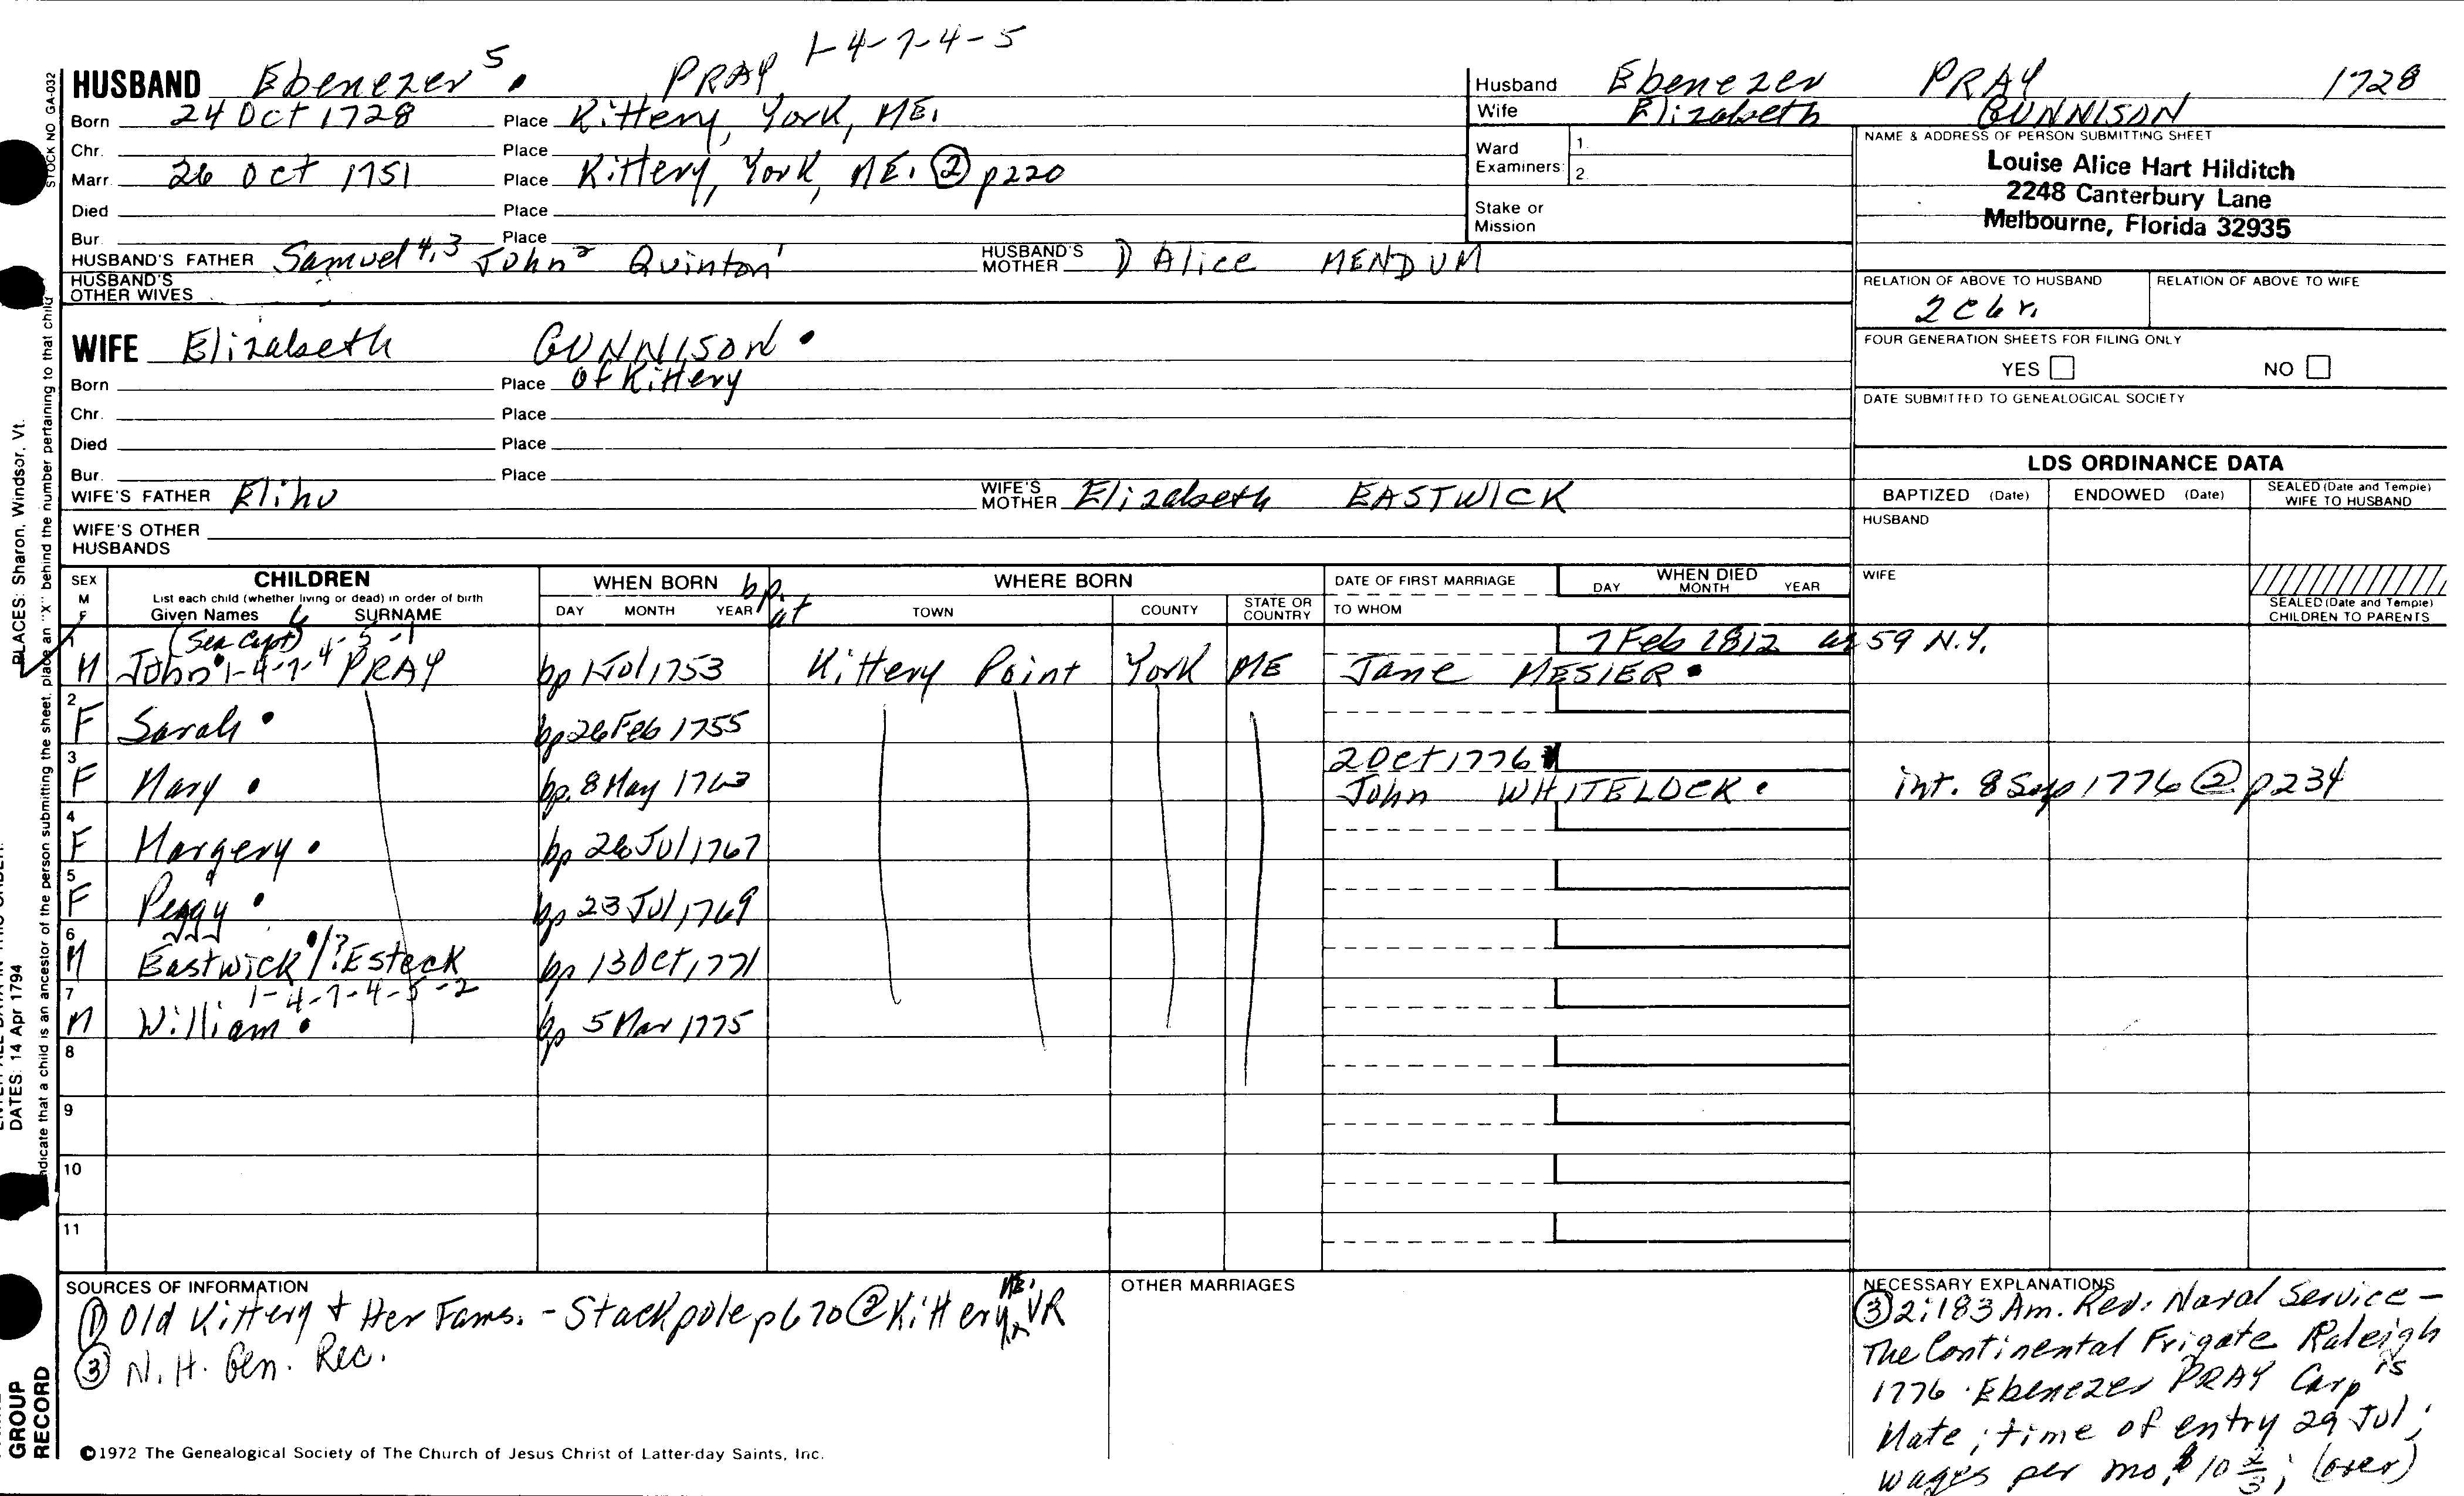 1-4-7-4-5
HUSBAND Ebenezer 5 . PRAY
Born 24 Oct 1728 Place Kittery, York, ME.
Chr. Place
Marr. 26 Oct 1751 Place Kittery, York, ME. ② p220
Died Place
Bur. Place
HUSBAND'S FATHER Samuel 4,3 John 2 Quinton 1 HUSBAND'S MOTHER ① Alice MENDUM
HUSBAND'S OTHER WIVES
WIFE Elizabeth GUNNISON .
Born Place of Kittery
Chr. Place
Died Place
Bur. Place
WIFE'S FATHER Elihu WIFE'S MOTHER Elizabeth EASTWICK
WIFE'S OTHER HUSBANDS
Husband Ebenezer PRAY 1728
Wife Elizabeth GUNNISON
Ward Examiners: 1. 2.
Stake or Mission
NAME & ADDRESS OF PERSON SUBMITTING SHEET
Louise Alice Hart Hilditch
2248 Canterbury Lane
Melbourne, Florida 32935
RELATION OF ABOVE TO HUSBAND RELATION OF ABOVE TO WIFE
2c6r.
FOUR GENERATION SHEETS FOR FILING ONLY
YES NO
DATE SUBMITTED TO GENEALOGICAL SOCIETY
LDS ORDINANCE DATA
BAPTIZED (Date) ENDOWED (Date) SEALED (Date and Temple) WIFE TO HUSBAND
HUSBAND
WIFE
SEALED (Date and Temple) CHILDREN TO PARENTS
SEX M F CHILDREN WHEN BORN bp. at WHERE BORN DATE OF FIRST MARRIAGE WHEN DIED
List each child (whether living or dead) in order of birth DAY MONTH YEAR
Given Names 6 SURNAME DAY MONTH YEAR TOWN COUNTY STATE OR COUNTRY TO WHOM
1 (Sea Capt) 1-4-7-4-5-1 7 Feb 1812 ae 59 N.Y.
M John . PRAY bp 1 Jul 1753 Kittery Point York ME Jane MESIER .
2 F Sarah . bp 26 Feb 1755
3 2 Oct 1776
F Mary . bp. 8 May 1763 John WHITELOCK . int. 8 Sep 1776 ② p234
4 F Margery . bp 26 Jul 1767
5 F Peggy . bp 23 Jul 1769
6 M Eastwick . /?Esteck bp 13 Oct 1771
7 1-4-7-4-5-2
M William . bp 5 Mar 1775
8
9
10
11
SOURCES OF INFORMATION
① Old Kittery & Her Fams. - Stackpole p670 ② Kittery, ME. VR
③ N. H. Gen. Rec.
OTHER MARRIAGES
NECESSARY EXPLANATIONS
③ 2:183 Am. Rev. Naval Service -
The Continental Frigate Raleigh
1776 . Ebenezer PRAY Carp's
Mate; time of entry 29 Jul;
wages per mo. $10 2/3; (over)
©1972 The Genealogical Society of The Church of Jesus Christ of Latter-day Saints, Inc.
STOCK NO. GA-032
PLACES: Sharon, Windsor, Vt.
DATES: 14 Apr 1794
indicate that a child is an ancestor of the person submitting the sheet, place an "X" behind the number pertaining to that child
GROUP
RECORD